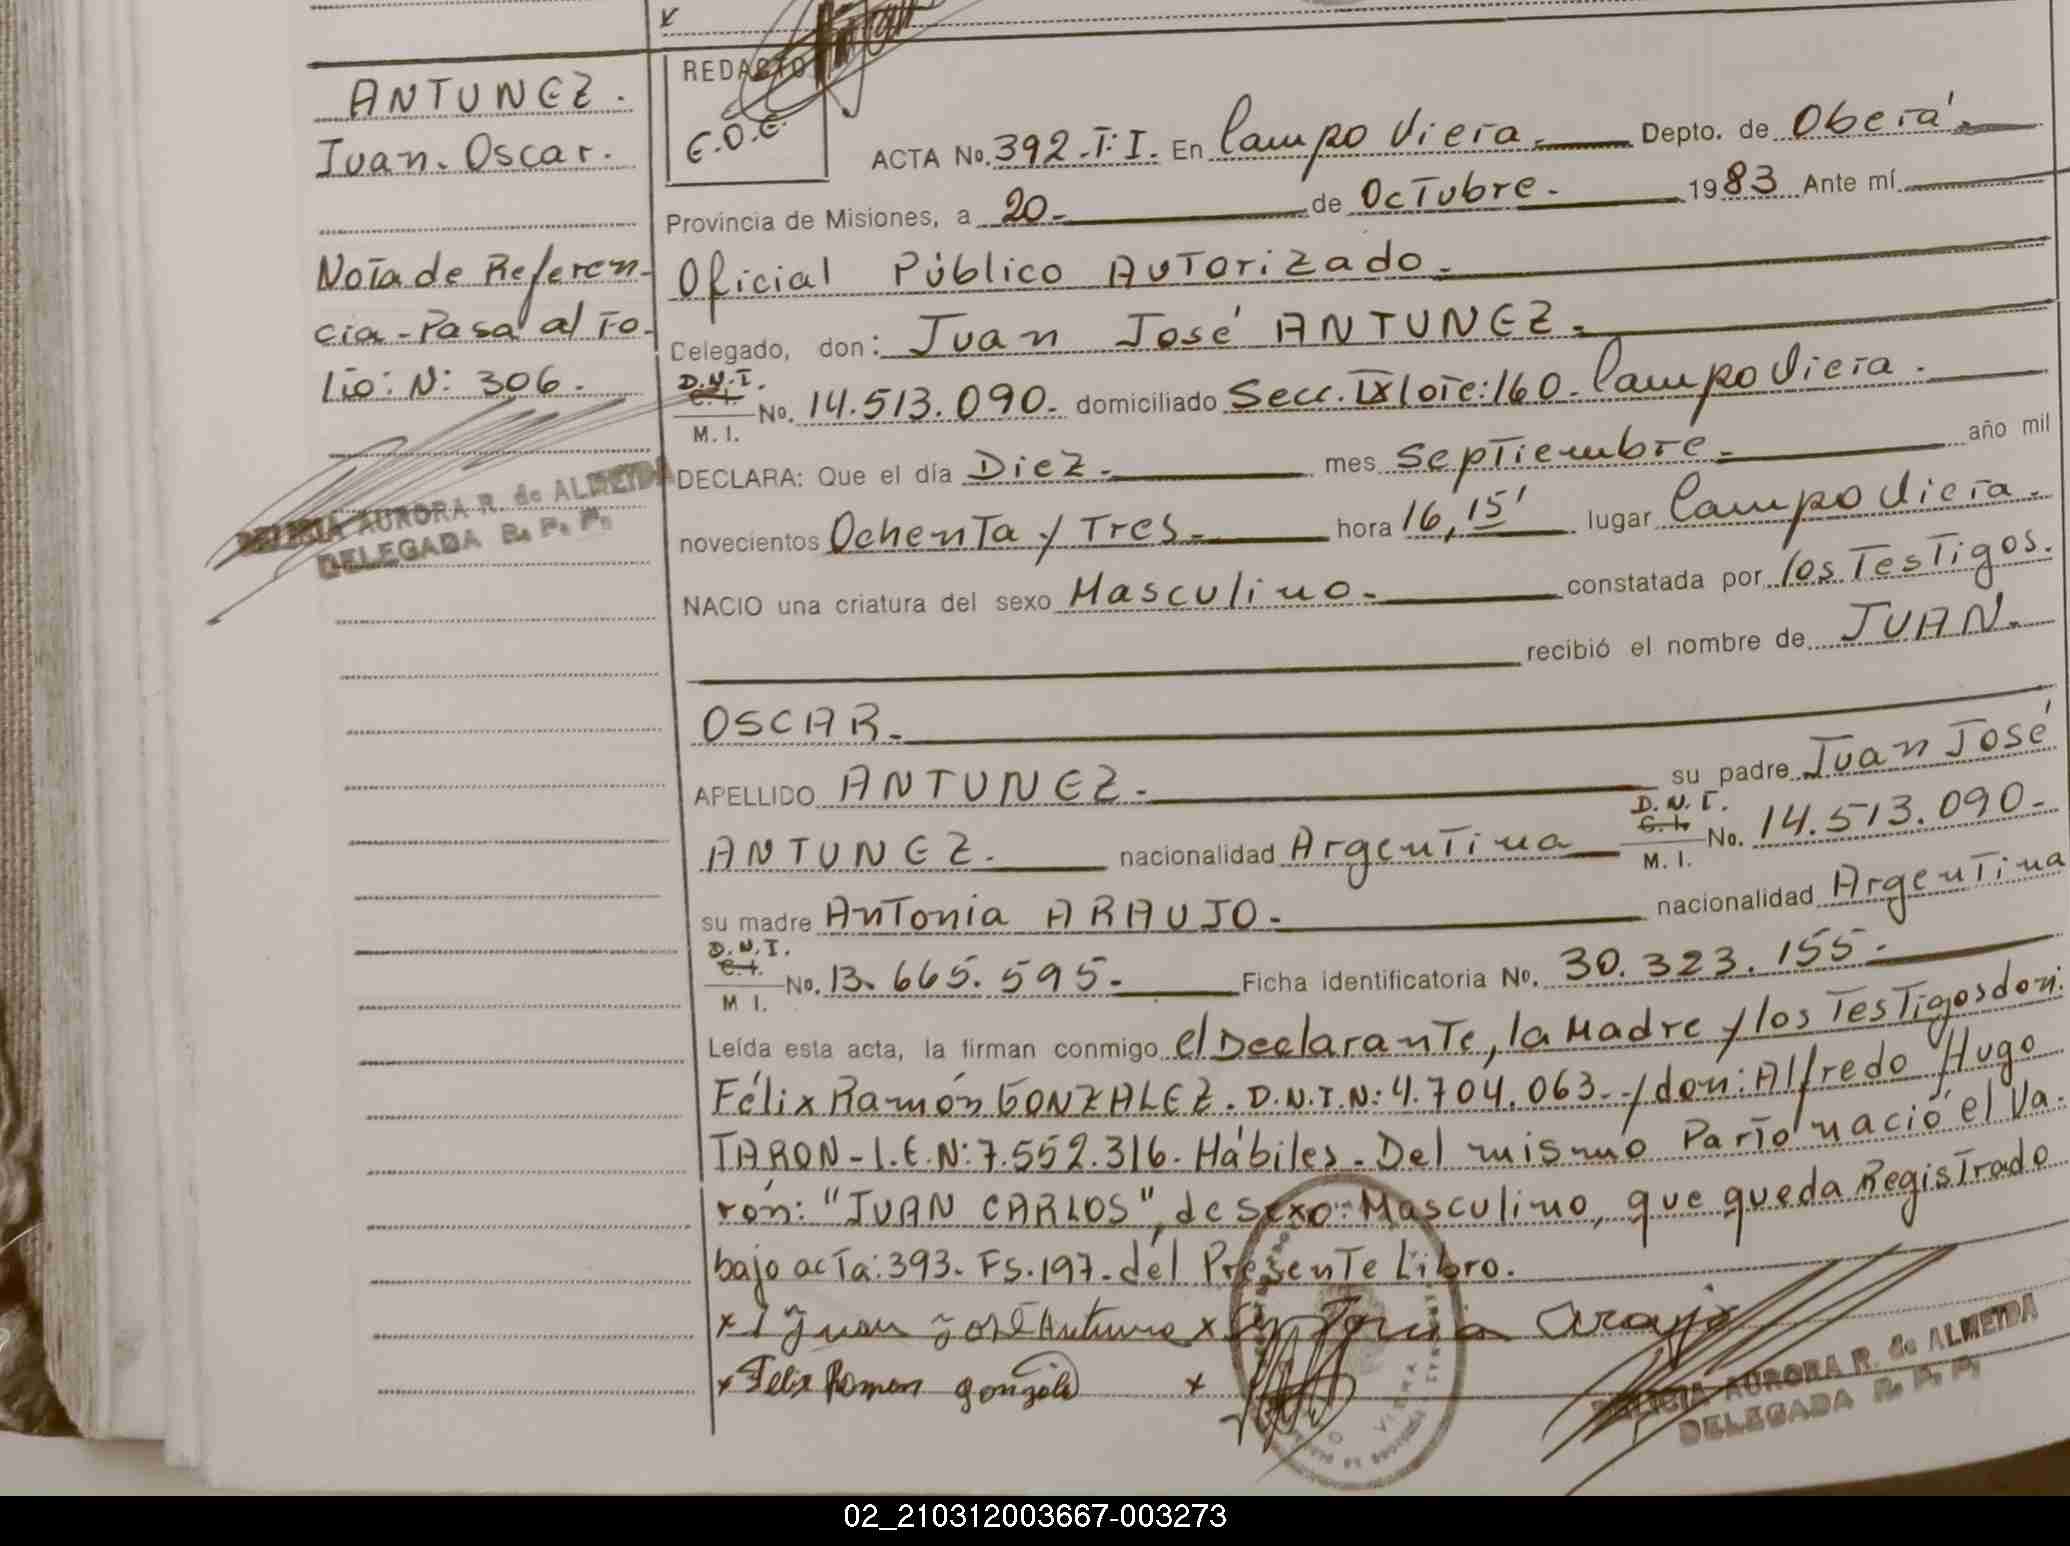 ANTUNEZ.
Juan. Oscar.
Nota de Referen-
cia - Pasa al Fo-
lio: N: 306.
DELICIA AURORA R. de ALMEIDA
DELEGADA R. P. P.
REDACTO
E.D.E.
ACTA No. 392.T:I. En Campo Viera. Depto. de Oberá
Provincia de Misiones, a 20- de Octubre. 1983 Ante mí
Oficial Público Autorizado.
Delegado, don: Juan José ANTUNEZ.
D.N.I.
C. I.
M. I.
No. 14.513.090. domiciliado Secc. IX lote: 160. Campo Viera.
DECLARA: Que el día Diez. mes Septiembre. año mil
novecientos Ochenta y Tres. hora 16,15' lugar Campo Viera.
NACIO una criatura del sexo Masculino. constatada por los Testigos.
recibió el nombre de JUAN.
OSCAR.
APELLIDO ANTUNEZ. su padre Juan José
ANTUNEZ. nacionalidad Argentina D.N.I. C. I. M. I. No. 14.513.090.
su madre Antonia ARAUJO. nacionalidad Argentina
D.N.I. C. I. M I. No. 13.665.595. Ficha identificatoria No. 30.323.155.
Leída esta acta, la firman conmigo el Declarante, la Madre y los Testigos don:
Félix Ramón GONZALEZ. D.N.I.N: 4.704.063.- y don: Alfredo Hugo
TARON - L.E.N: 7.552.316. Hábiles. Del mismo Parto nació el Va-
rón: "JUAN CARLOS", de sexo: Masculino, que queda Registrado
bajo acta: 393. Fs. 197. del Presente Libro.
x Juan José Antunez x Antonia Araujo
x Felix Ramon gonzalez x
DELICIA AURORA R. de ALMEIDA
DELEGADA R. P. P.
02_210312003667-003273